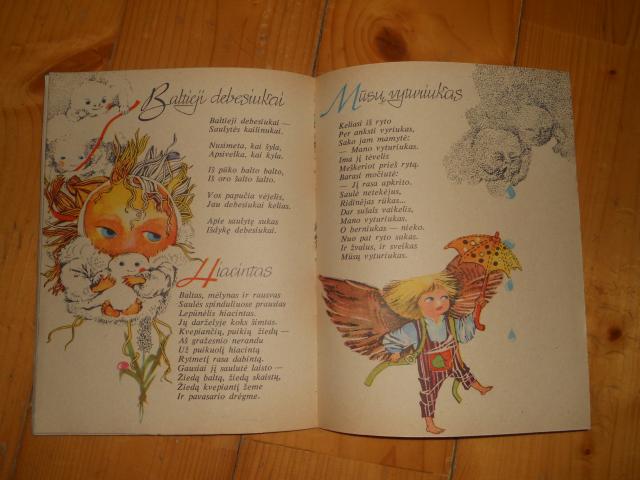 Baltieji debesiukai
Baltieji debesiukai —
Saulytės kailinukai.
Nusimeta, kai šyla,
Apsivelka, kai kyla.
Iš pūko balto balto,
Iš oro šalto šalto.
Vos papučia vėjelis,
Jau debesiukai kelias.
Apie saulytę sukas
Išdykę debesiukai.
Hiacintas
Baltas, mėlynas ir rausvas
Saulės spinduliuose prausias
Lepūnėlis hiacintas.
Jų darželyje koks šimtas.
Kvepiančių, puikių žiedų —
Aš gražesnio nerandu
Už puikuolį hiacintą
Rytmetį rasa dabintą.
Gausiai jį saulutė laisto —
Žiedą baltą, žiedą skaistų,
Žiedą kvepiantį žeme
Ir pavasario drėgme.
Mūsų vyturiukas
Keliasi iš ryto
Per anksti vyriukas,
Sako jam mamytė:
— Mano vyturiukas.
Ima jį tėvelis
Meškeriot prieš rytą.
Barasi močiutė:
— Jį rasa apkrito.
Saulė netekėjus,
Ridinėjas rūkas...
Dar sušals vaikelis,
Mano vyturiukas.
O berniukas — nieko.
Nuo pat ryto sukas.
Ir žvalus, ir sveikas
Mūsų vyturiukas.